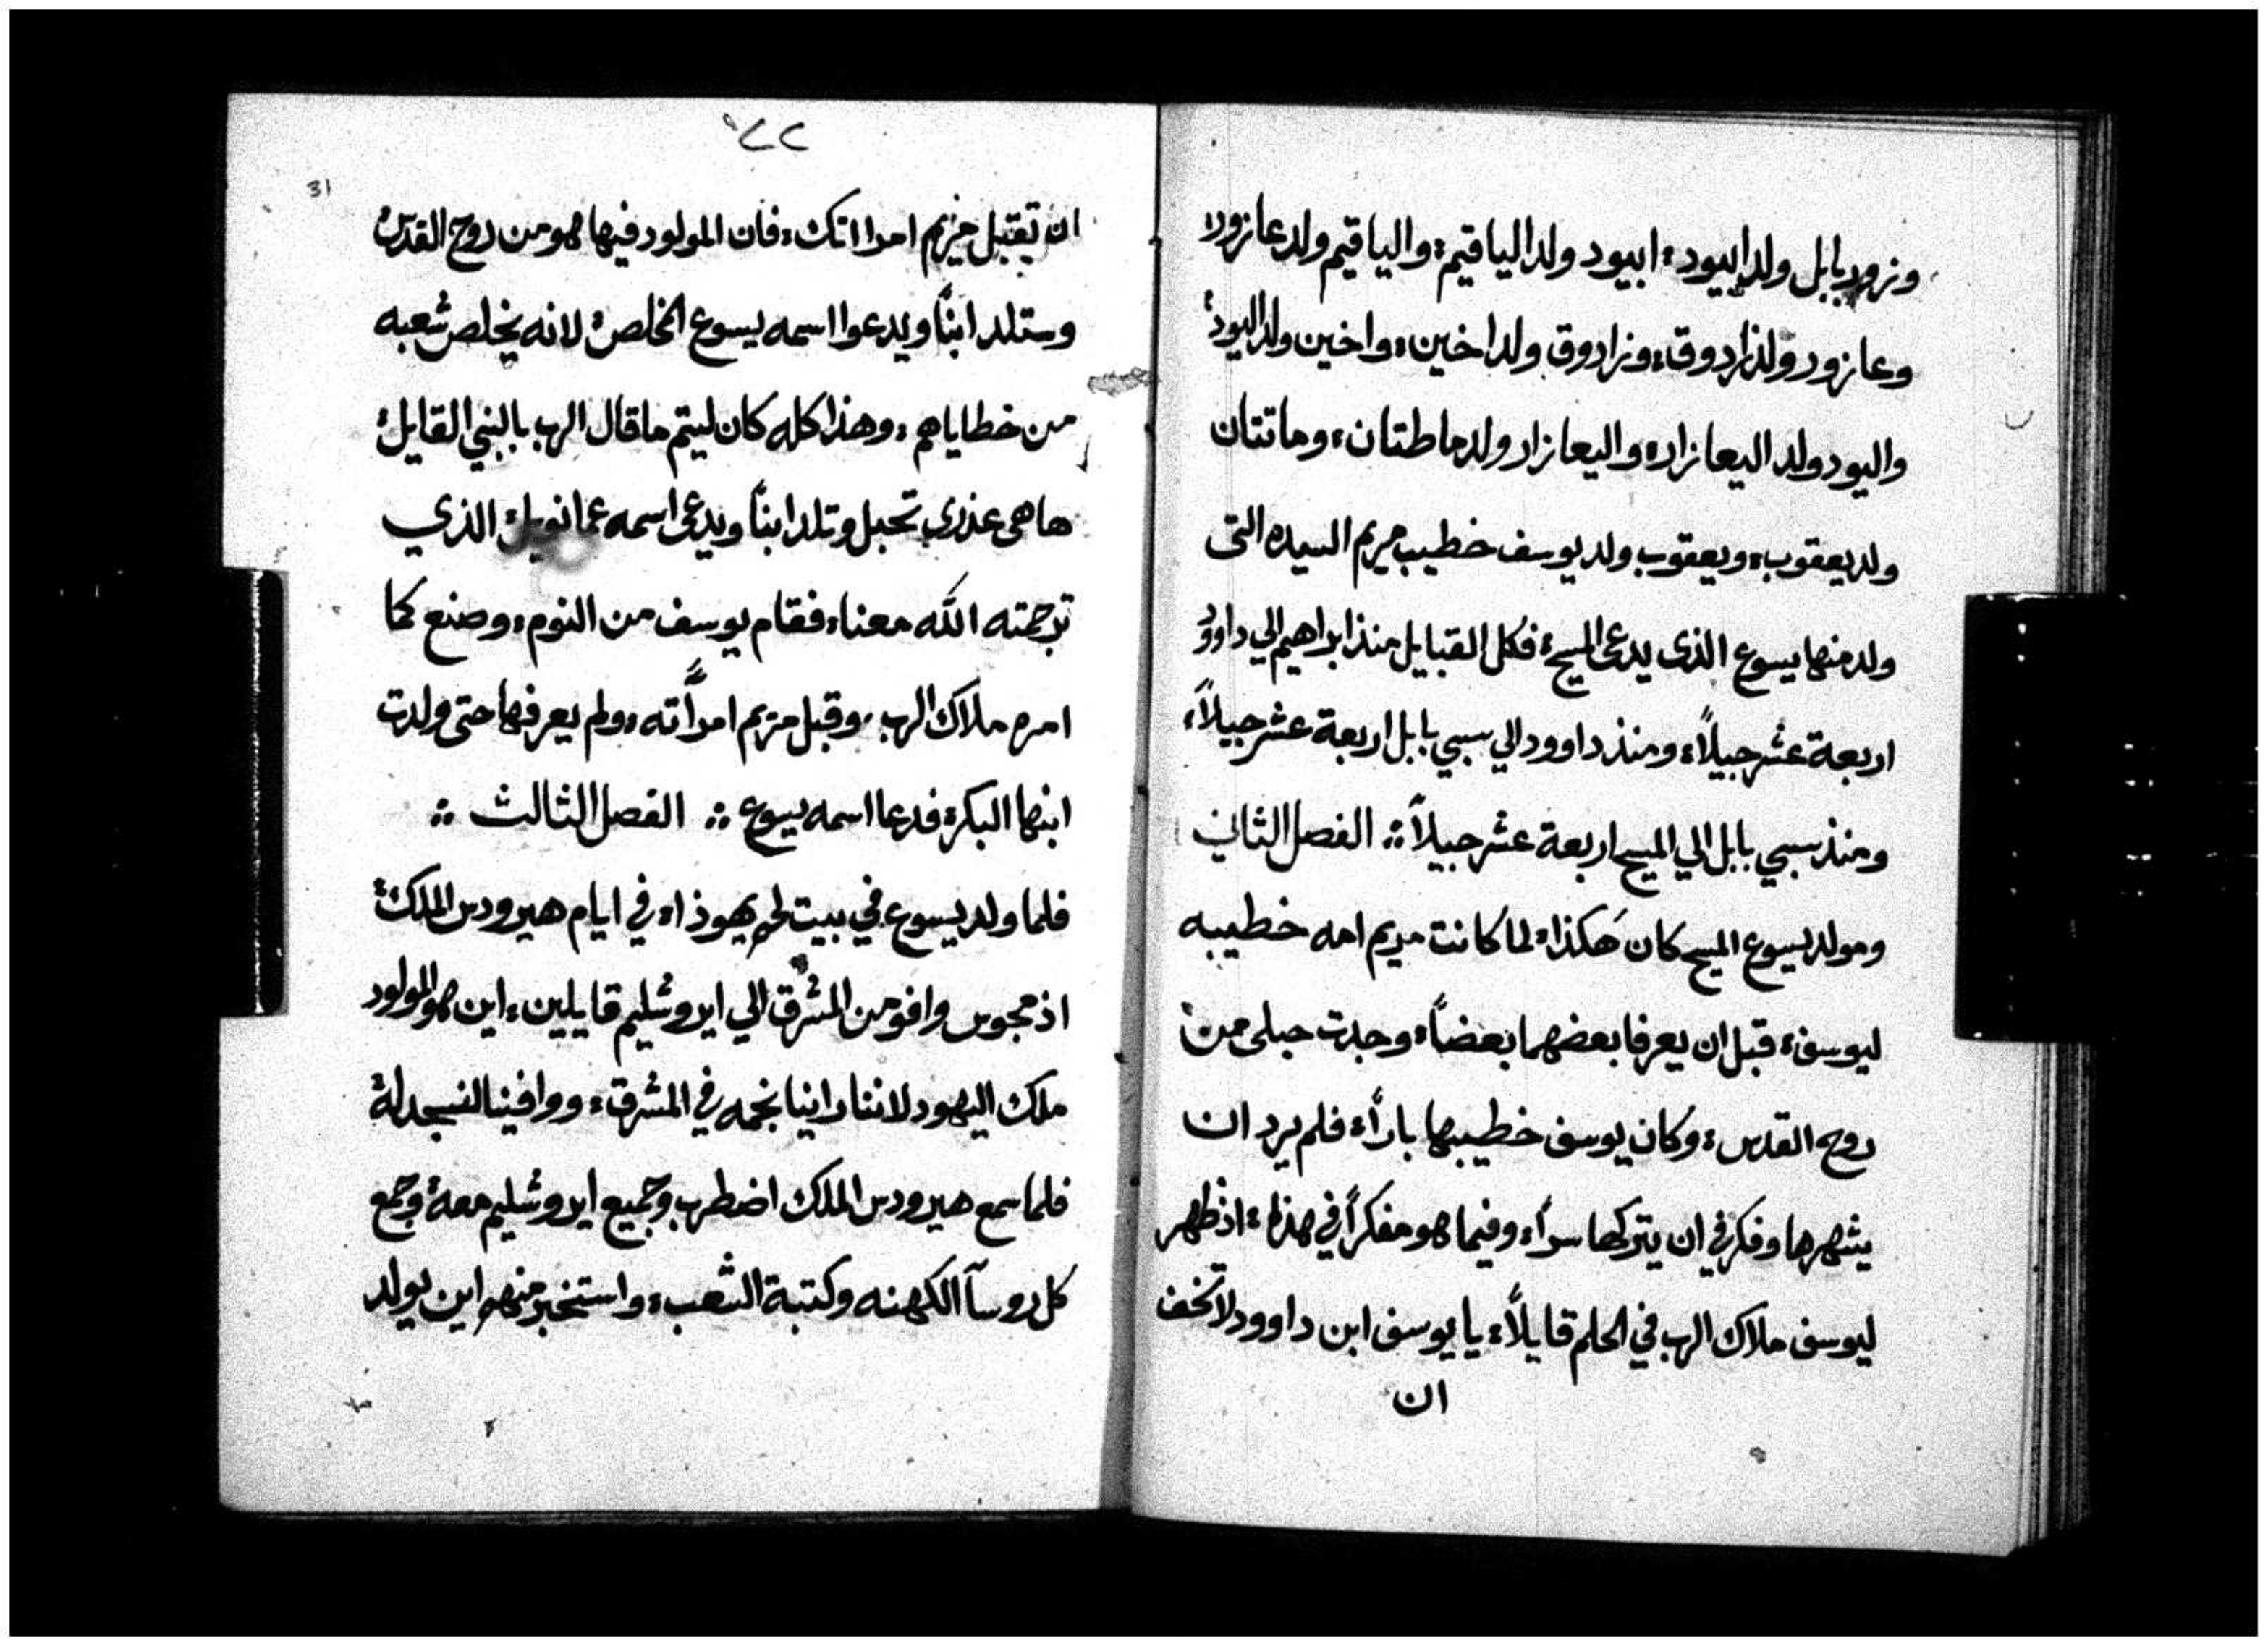 ونرور بابل ولد ابيود، ابيود ولد الياقيم، والياقيم ولد عازور
وعازور ولد زادوق، وزادوق ولد اخين، واخين ولد اليود،
واليود ولد اليعازار، واليعازار ولد ماطتان، وماتتان
ولد يعقوب، ويعقوب ولد يوسف خطيب مريم السيده التى
ولد منها يسوع الذى يدعى المسيح، فكل القبايل منذ ابراهيم الي داوود
اربعة عشر جيلاً، ومنذ داوود الي سبي بابل اربعة عشر جيلاً،
ومنذ سبي بابل الي المسيح اربعة عشر جيلاً ⁘ الفصل الثاني
ومولد يسوع المسيح كان هَكذا، لما كانت مريم امه خطيبه
ليوسف، قبل ان يعرفا بعضهما بعضاً، وجدت حبلى من
روح القدس، وكان يوسف خطيبها باراً، فلم يرد ان
يشهرها وفكر في ان يتركها سراً، وفيما هو مفكراً في هذا، اذ ظهر
ليوسف ملاك الرب في الحلم قايلاً، يا يوسف ابن داوود لا تخف
ان
٢٢
31
ان تقبل مريم امرااتك، فان المولود فيها هو من روح القدس
وستلد ابناً ويدعوا اسمه يسوع المخلص، لانه يخلص شعبه
من خطاياهم، وهذا كله كان ليتم ماقال الرب بالنبي القايل،
هاهى عذري تحبل وتلد ابناً ويدعى اسمه عمانويل، الذي
ترجمته الله معنا، فقام يوسف من النوم، وصنع كما
امره ملاك الرب، وقبل مريم امراًته، ولم يعرفها حتى ولدت
ابنها البكر، فدعا اسمه يسوع ⁘ الفصل الثالث ⁘
فلما ولد يسوع في بيت لحم يهوذا، في ايام هيرودس الملك،
اذ مجوس وافو من المشرق الي ايروشليم قايلين، اين هو المولود
ملك اليهود لاننا راينا نجمه في المشرق، ووافينا لنسجد له
فلما سمع هيرودس الملك اضطرب وجميع ايروشليم معه، وجمع
كل روسآ الكهنه وكتبة الشعب، واستخبر منهم اين يولد